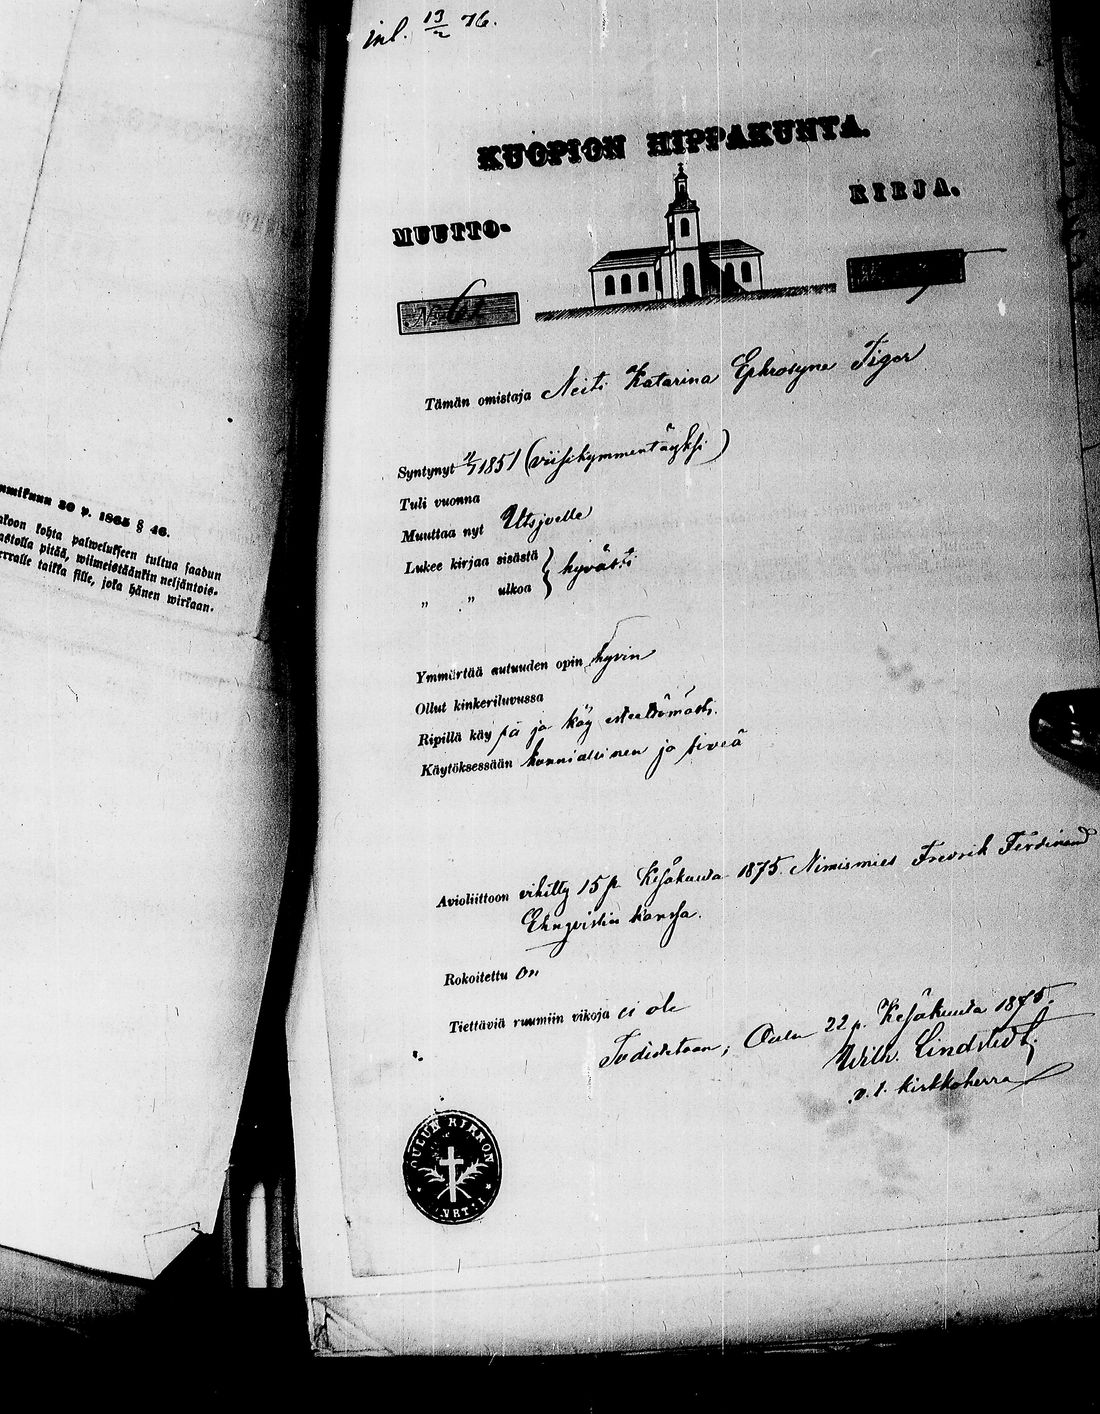 inl. 13/2 76.
KUOPION HIPPAKUNTA.
MUUTTO-
KIRJA.
N:o 62
Tämän omistaja Neiti Katarina Ephrosyne Tiger
Syntynyt 1851 (viisikymmentäyksi)
Tuli vuonna
Muuttaa nyt Utsjoelle
Lukee kirjaa sisästä } hyvästi
„ „ ulkoa
Ymmärtää autuuden opin hyvin
Ollut kinkeriluvussa
Ripillä käynyt ja käy esteettömästi.
Käytöksessään kunniallinen ja siveä
Avioliittoon vihitty 15 p. Kesäkuuta 1875. Nimismies Fredrik Ferdinand
Ehnqvistin kanssa.
Rokoitettu on
Tiettäviä ruumiin vikoja ei ole
Todistetaan; Oulu 22 p. Kesäkuuta 1875.
Wilh. Lindstedt,
v.t. kirkkoherra
OULUN KIRKON
30 p. 1865 § 46.
kohta palwelukseen tultua saadun
pitää, wiimeistäänkin neljäntois-
taikka sille, joka hänen wirkaan-